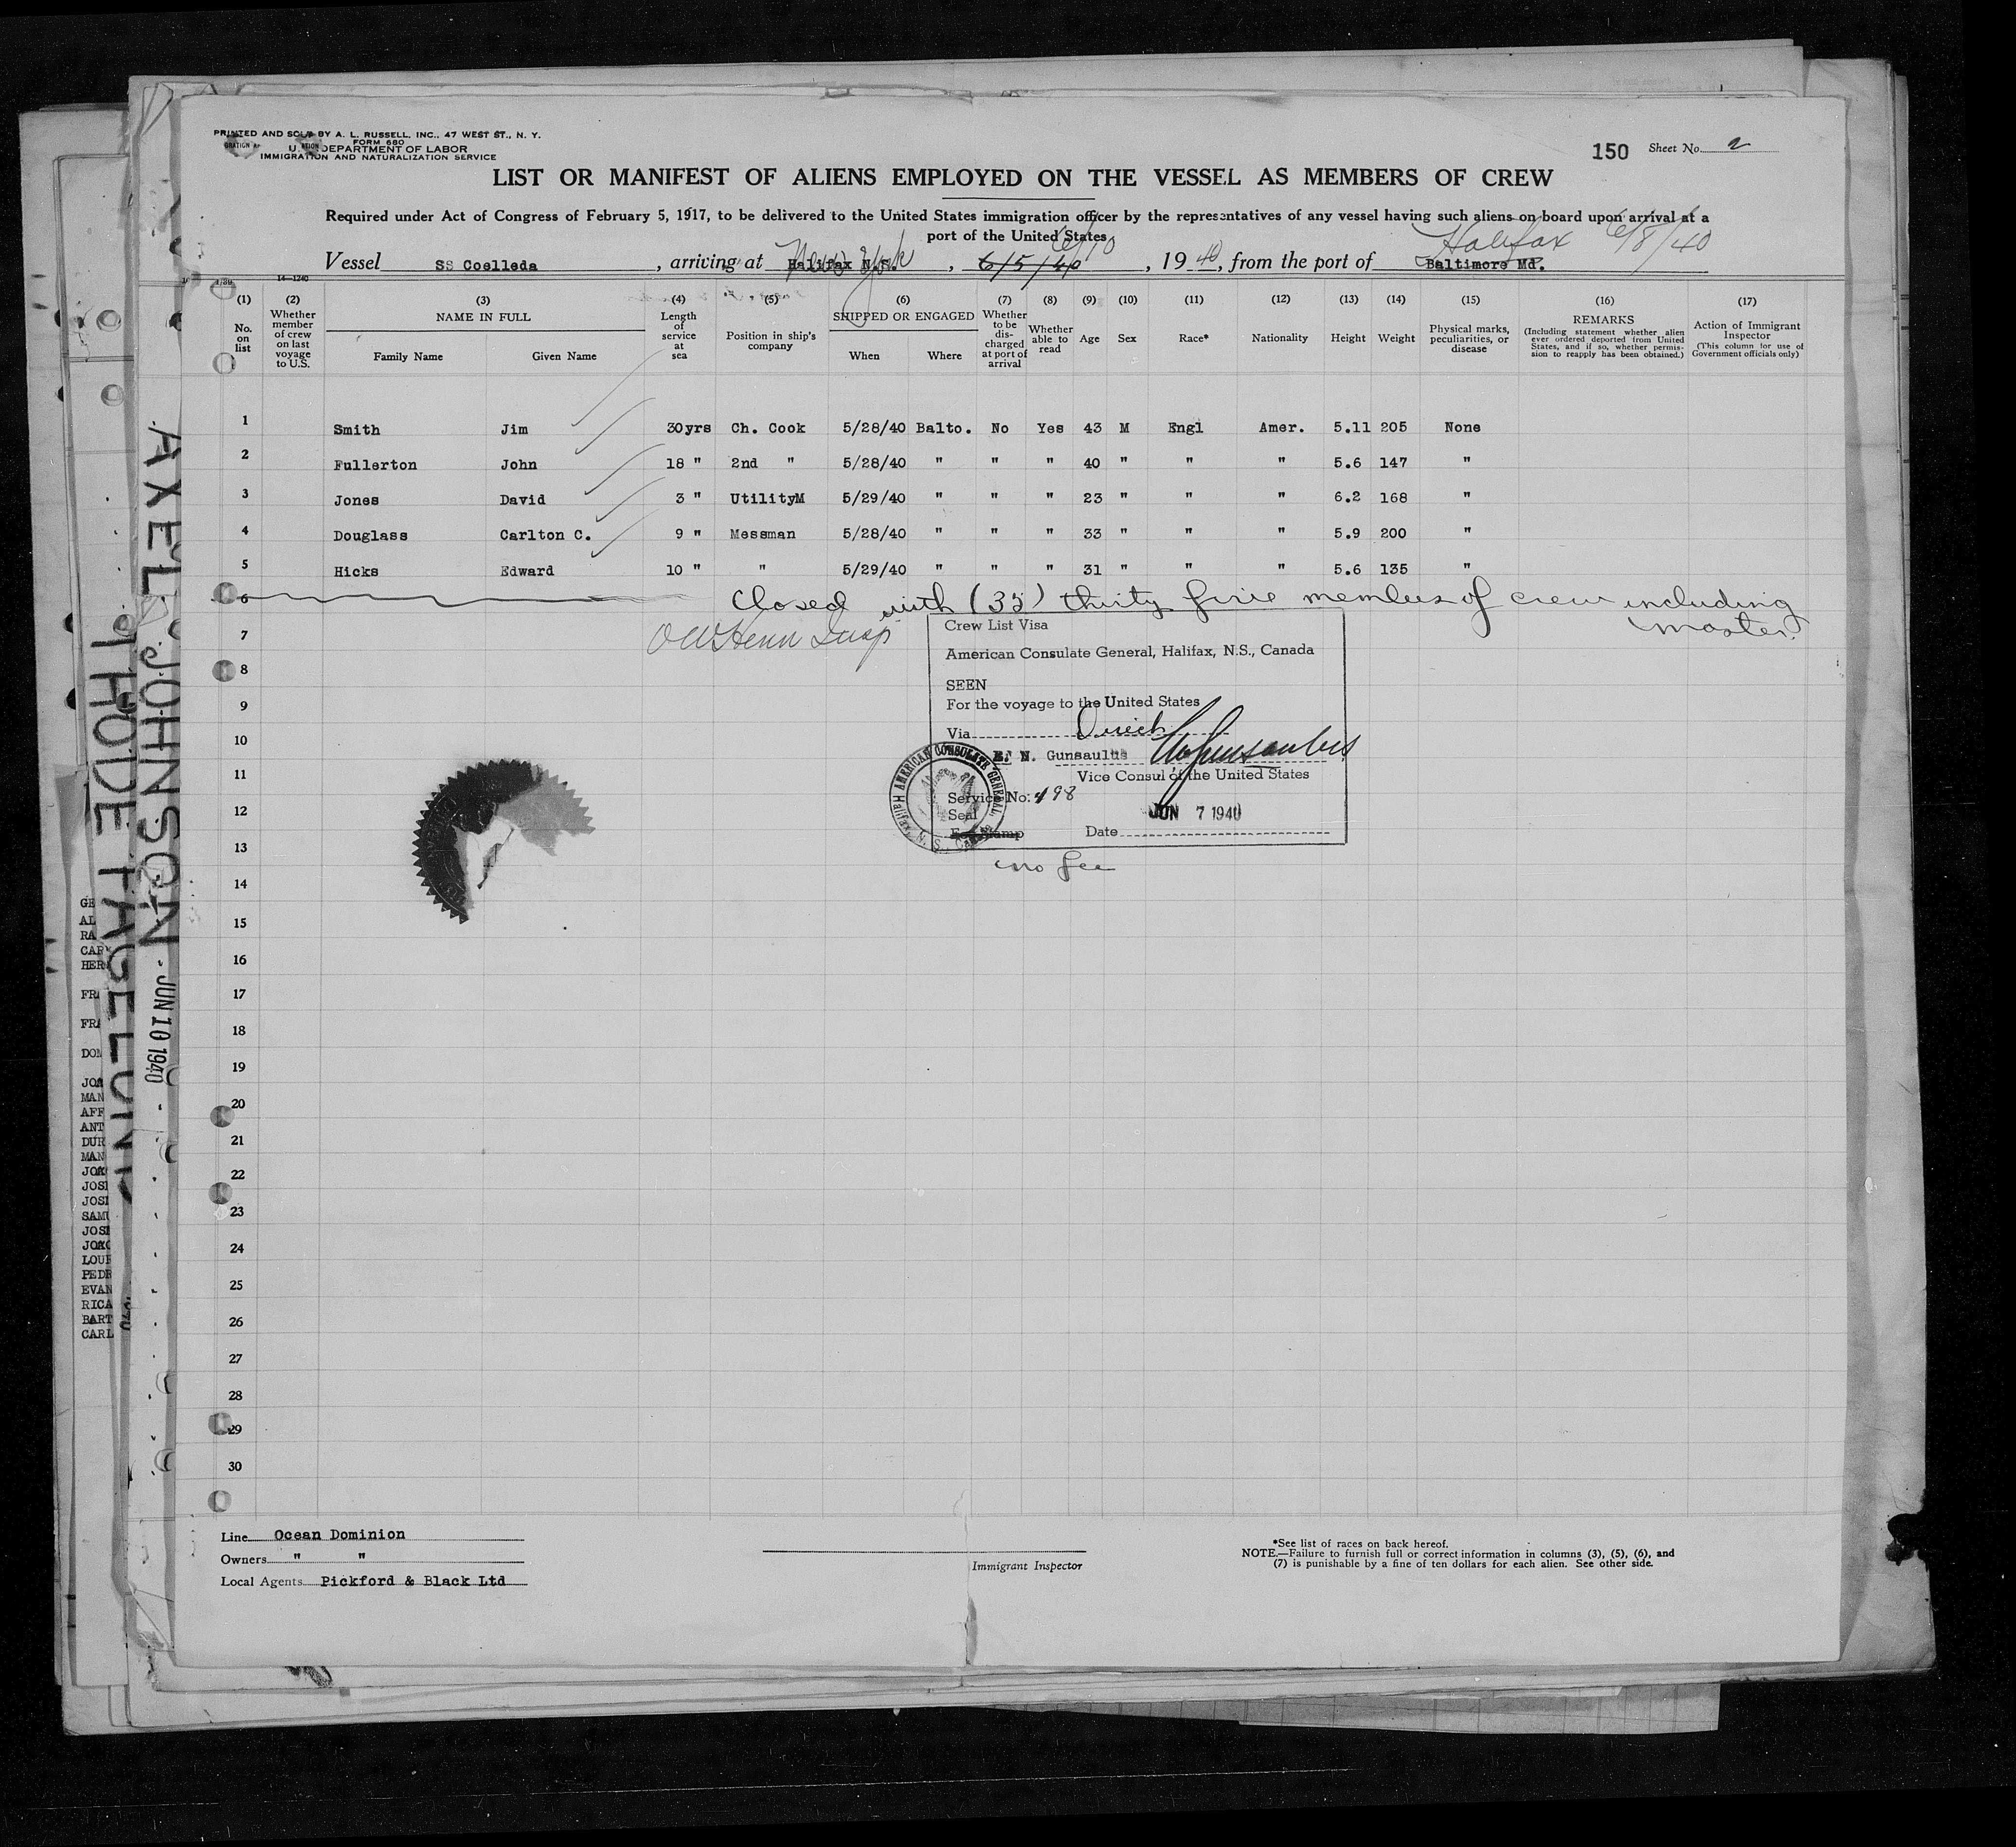 PRINTED AND SOLD BY A. L. RUSSELL, INC., 47 WEST ST., N. Y.
FORM 680
U. S. DEPARTMENT OF LABOR
IMMIGRATION AND NATURALIZATION SERVICE
150 Sheet No. 2
LIST OR MANIFEST OF ALIENS EMPLOYED ON THE VESSEL AS MEMBERS OF CREW
Required under Act of Congress of February 5, 1917, to be delivered to the United States immigration officer by the representatives of any vessel having such aliens on board upon arrival at a
port of the United States
6/10 Halifax 6/8/40
Vessel SS Coelleda, arriving at Halifax N.S. New York, 6/5/40, 1940, from the port of Baltimore Md.
14-1240
(1) (2) (3) (4) (5) (6) (7) (8) (9) (10) (11) (12) (13) (14) (15) (16) (17)
No. on list
Whether member of crew on last voyage to U.S.
NAME IN FULL
Family Name Given Name
Length of service at sea
Position in ship's company
SHIPPED OR ENGAGED
When Where
Whether to be discharged at port of arrival
Whether able to read
Age
Sex
Race*
Nationality
Height
Weight
Physical marks, peculiarities, or disease
REMARKS
(Including statement whether alien ever ordered deported from United States, and if so, whether permission to reapply has been obtained.)
Action of Immigrant Inspector
(This column for use of Government officials only)
1 Smith Jim 30yrs Ch. Cook 5/28/40 Balto. No Yes 43 M Engl Amer. 5.11 205 None
2 Fullerton John 18 " 2nd " 5/28/40 " " " 40 " " " 5.6 147 "
3 Jones David 3 " UtilityM 5/29/40 " " " 23 " " " 6.2 168 "
4 Douglass Carlton C. 9 " Messman 5/28/40 " " " 33 " " " 5.9 200 "
5 Hicks Edward 10 " " 5/29/40 " " " 31 " " " 5.6 135 "
6 Closed with (35) thirty five members of crew including
master.
7
8
9
10
11
12
13
14
15
16
17
18
19
20
21
22
23
24
25
26
27
28
29
30
Crew List Visa
American Consulate General, Halifax, N.S., Canada
SEEN
For the voyage to the United States
Via Direct
E. N. Gunsaulus
Vice Consul of the United States
Service No: 498
Seal
Fee Stamp
Date JUN 7 1940
no fee
AMERICAN CONSULATE GENERAL
Line Ocean Dominion
Owners " "
Local Agents Pickford & Black Ltd
Immigrant Inspector
*See list of races on back hereof.
NOTE.—Failure to furnish full or correct information in columns (3), (5), (6), and
(7) is punishable by a fine of ten dollars for each alien. See other side.
AXEL JOHNSON JUN 10 1940
THODE FAGELUND
GE
AL
RA
CAR
HER
FRA
FRA
DOM
JOA
MAN
AFF
ANT
DUR
MAN
JOA
JOSE
JOSE
SAMU
JOSE
JOAO
LOUR
PEDR
EVAN
RICA
BART
CARL